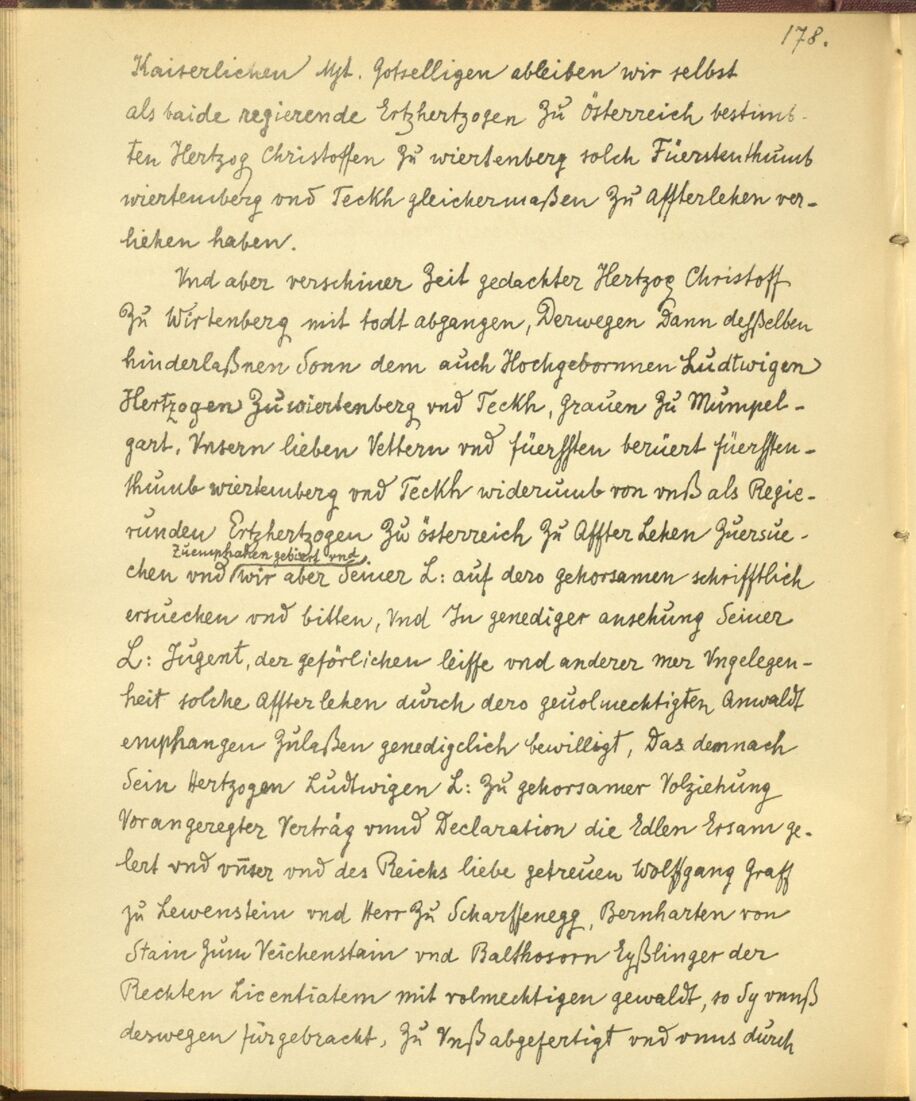 178.
Kaiserlichen Mjt. Gotselligen ableiben wir selbst
als baide regierende Ertzhertzogen Zu Österreich bestimb-
ten Hertzog Christoffen Zu wiertenberg solch Füerstenthumb
wiertemberg vnd Teckh gleichermaßen Zu Affterlehen ver-
liehen haben.
Vnd aber verschiner Zeit gedachter Hertzog Christoff
Zu Wirtenberg mit todt abgangen, Derwegen Dann deßselben
hinderlaßnen Sonn dem auch Hochgebornnen Ludtwigen
Hertzogen Zu wiertenberg vnd Teckh, Grauen Zu Mümpel-
gart, Vnsern lieben Vettern vnd füerssten berüert füerssten-
thumb wiertemberg vnd Teckh widerumb von vnß als Regie-
runden Ertzhertzogen Zu österreich Zu Affter Lehen Zuersue-
Zuemphahen gebiert vnd
chen vnd wir aber Seiner L: auf dero gehorsamen schrifftlich
ersuechen vnd bitten, Vnd In genediger ansehung Seiner
L: Jugent, der geförlichen leiffe vnd anderer mer Vngelegen-
heit solche Affterlehen durch dero geuolmechtigten Anwaldt
emphangen Zulaßen genedigclich bewilligt, Das demnach
Sein Hertzogen Ludtwigen L: Zu gehorsamer Volziehung
Vorangeregter Verträg vnnd Declaration die Edlen Ersam ge-
lert vnd vnser vnd des Reichs liebe getreuen Wolffgang Graff
zu Lewenstein vnd Herr Zu Scharffenegg, Bernharten von
Stain Zum Reichenstain vnd Balthosorn Eyßlinger der
Rechten Licentiatem mit volmechtigen gewaldt, so Sy vnnß
deswegen fürgebracht, Zu Vnß abgefertigt vnd vnns durch